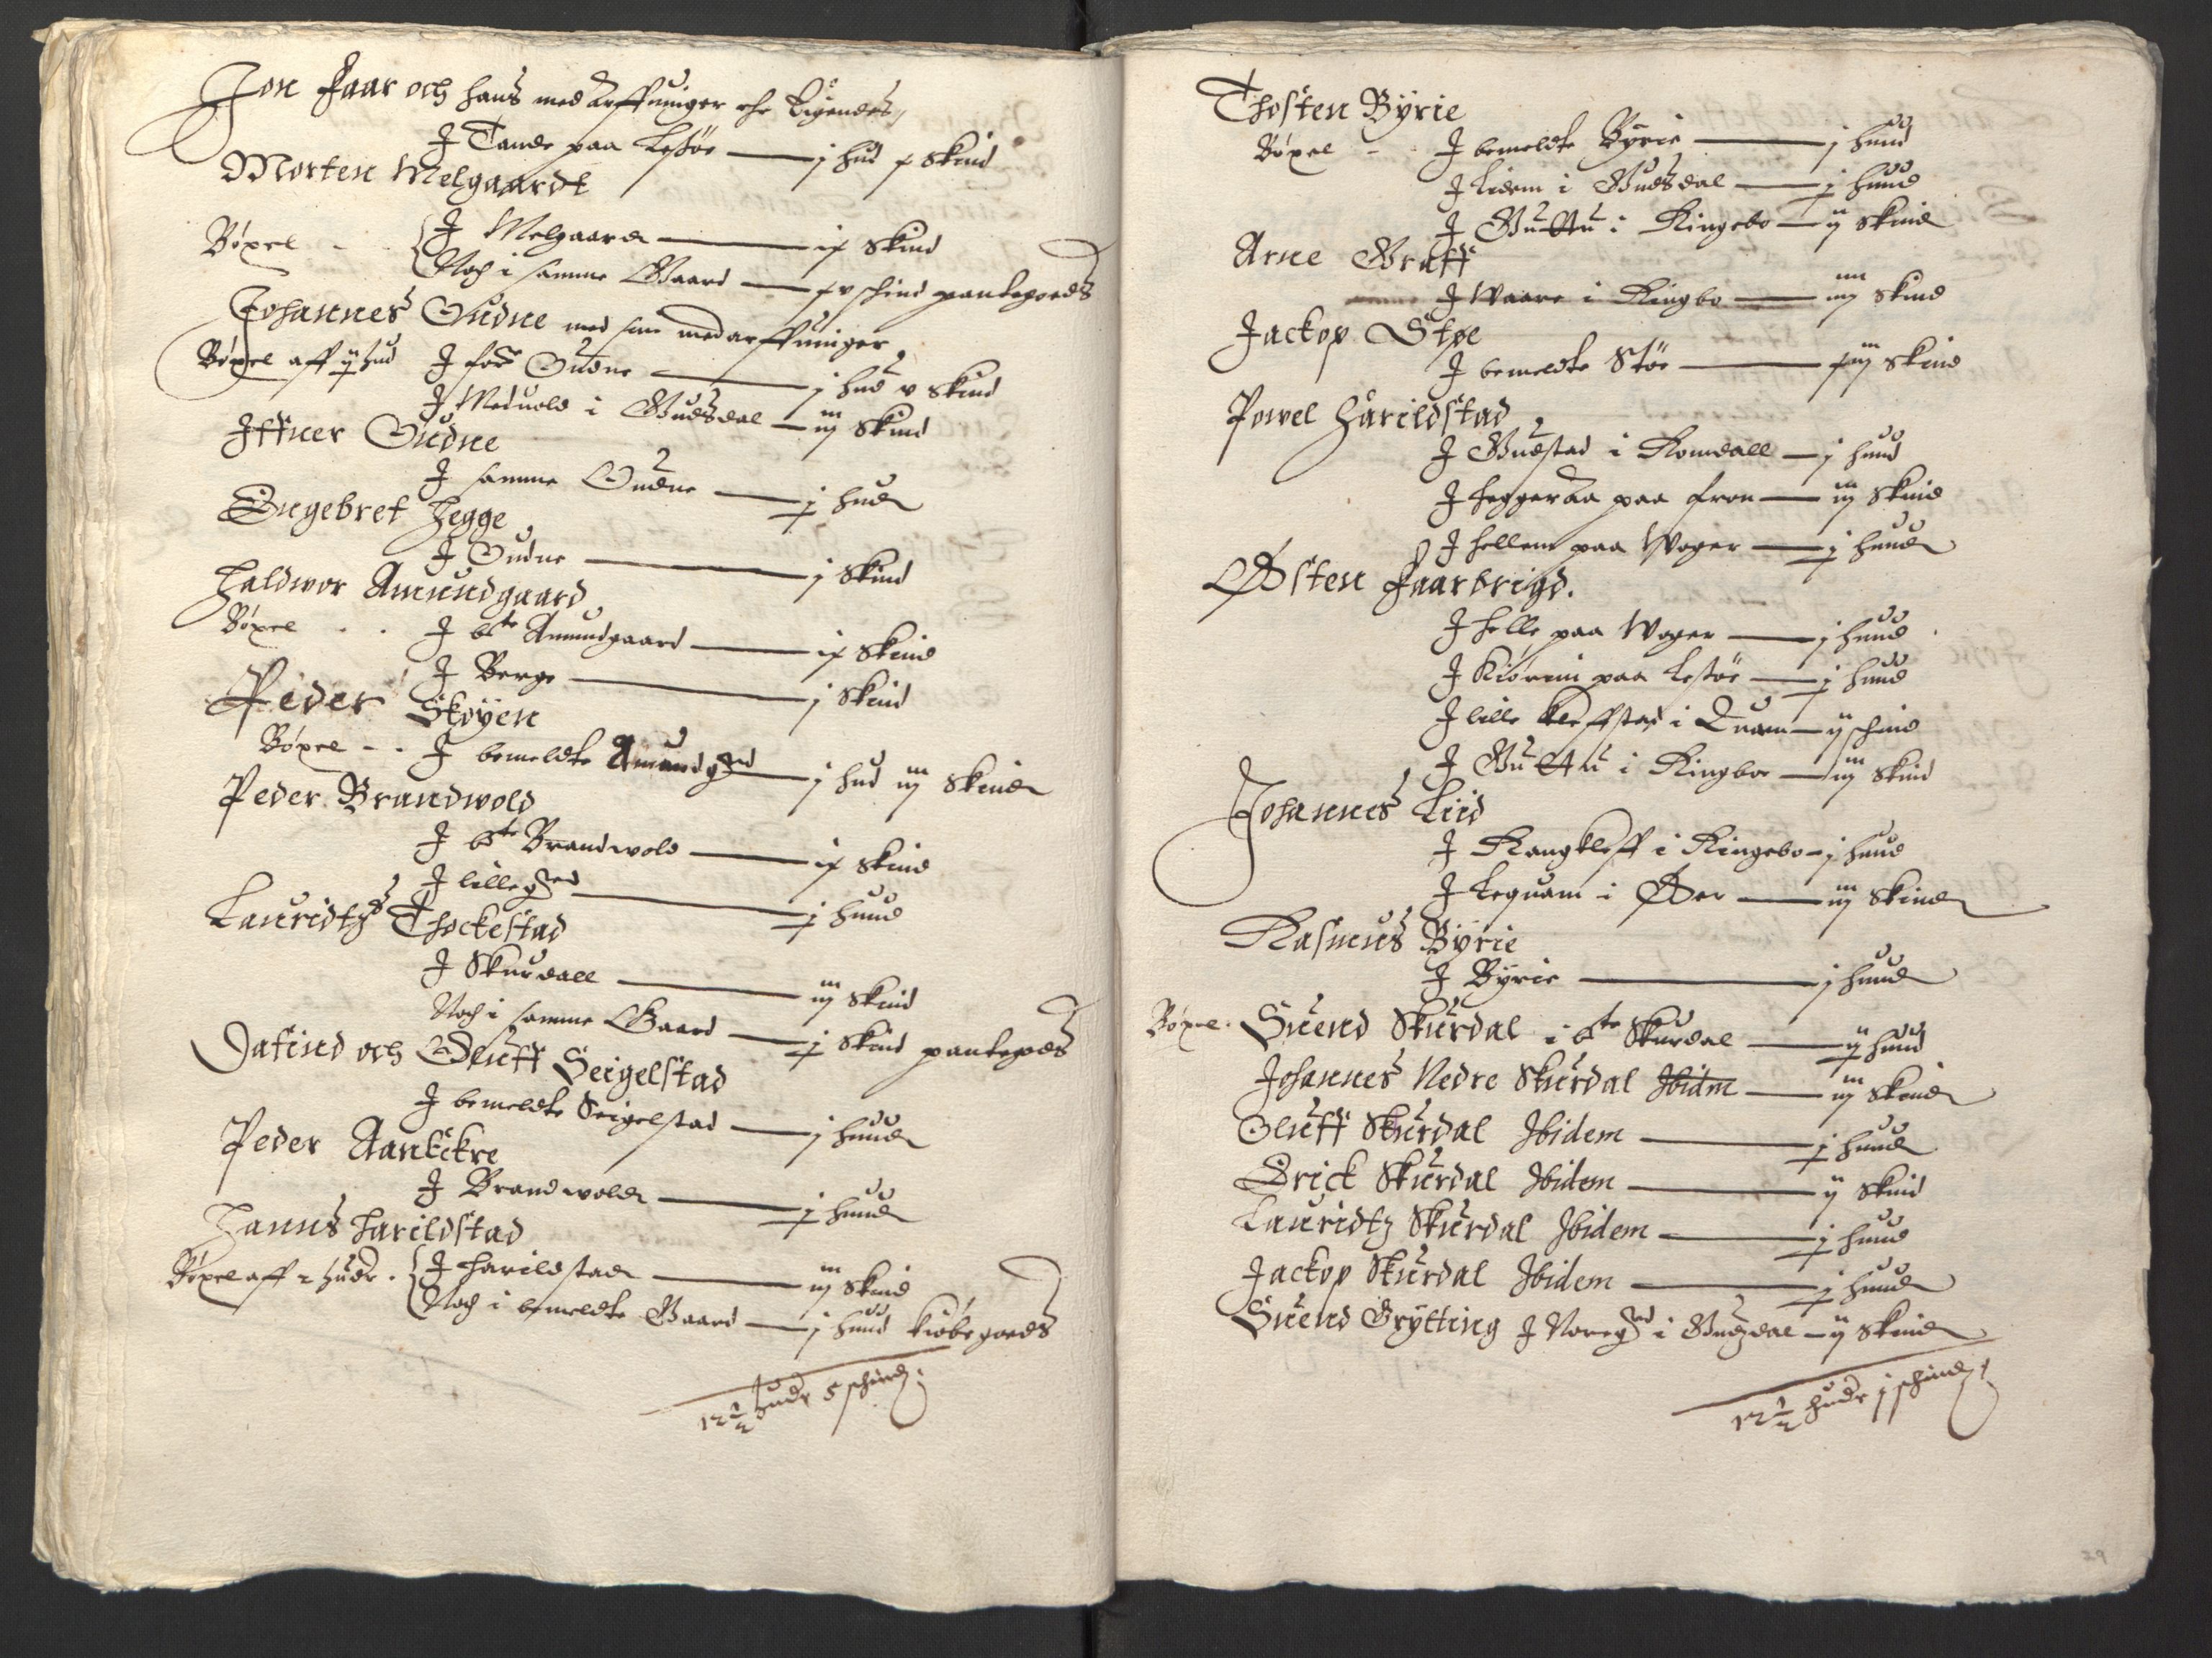 Jon Faar och hans med arffuinger ehr Eigendes,
J Tande paa Lessøe — j hud x skind
Morten Melgaardt
Bøxel - - J Melgaard — ix skind
Noch i samme Gaard — xv schind pantegoeds
Johannes Gudne med sine medarffuinger
Bøxel aff ij hud J for: Gudne — j hud v skind
J Meduold i Gudsdal — iij skind
Iffuer Gudne
J samme Gudne — j hud
Engebret Hegge
J Gudne — j skind
Haldwor Amundgaard
Bøxel - - J bte Amundgaard — ix skind
J Berge — j skind
Peder Støyen
Bøxel - - J bemeldte Amundgrd — j hud iij skind
Peder Brandwold
J bte Brandwold — ix skind
J lillegrd — j huud
Lauridtz Thockestad
J Skurdall — iij skind
Noch i samme Gaard — j skind pantegods
Jafind och Oluff Seigelstad
J bemeldte Seigelstad — j huud
Peder Aanekre
J Brandwold — j huud
Hanns Harildstad
Bøxel aff 2 hudr. J Harildstad — iij skind
Noch i bemeldte Gaard — j huud kiøbegoeds
12½ hudr 5 schind;
Thosten Byrie
Bøxel - - J bemeldte Byrie — j huud
J Lidem i Gudsdal — j huud
J Guttu i Ringebo — ij skind
Arne Graff
J Waare i Ringbo — iiij skind
Jackop Støe
J bemeldte Støe — xiij skind
Powel Harildstad
J Gudstad i Romdall — j huud
J Heggeraa paa Fron — iij skind
J Hellem paa Woger — j huud
Østen Faarbrigd.
J Helle paa Woger — j huud
J Kiørem paa Lessøe — j huud
J lille Kleffstad i Quam — ij schind
J Guttu i Ringboe — iij skind
Johannes Liid
J Rangkleff i Ringebo — j huud
J Lequam i Øer — iij skind
Rasmus Byrie
J Byrie — j huud
Bøxel. Suend Skurdal i bte Skurdal — ij huud
Johannes Nedre Skurdal Ibidm — iij skind
Oluff Skurdal Ibidem — j huud
Erick Skurdal Ibidem — ij skind
Lauridtz Skurdal Ibidem — j huud
Jackop Skurdal Ibidem — j huud
Suend Grytting J Noregrd i Gudzdal — ij skind
12½ hudr j schind;
29